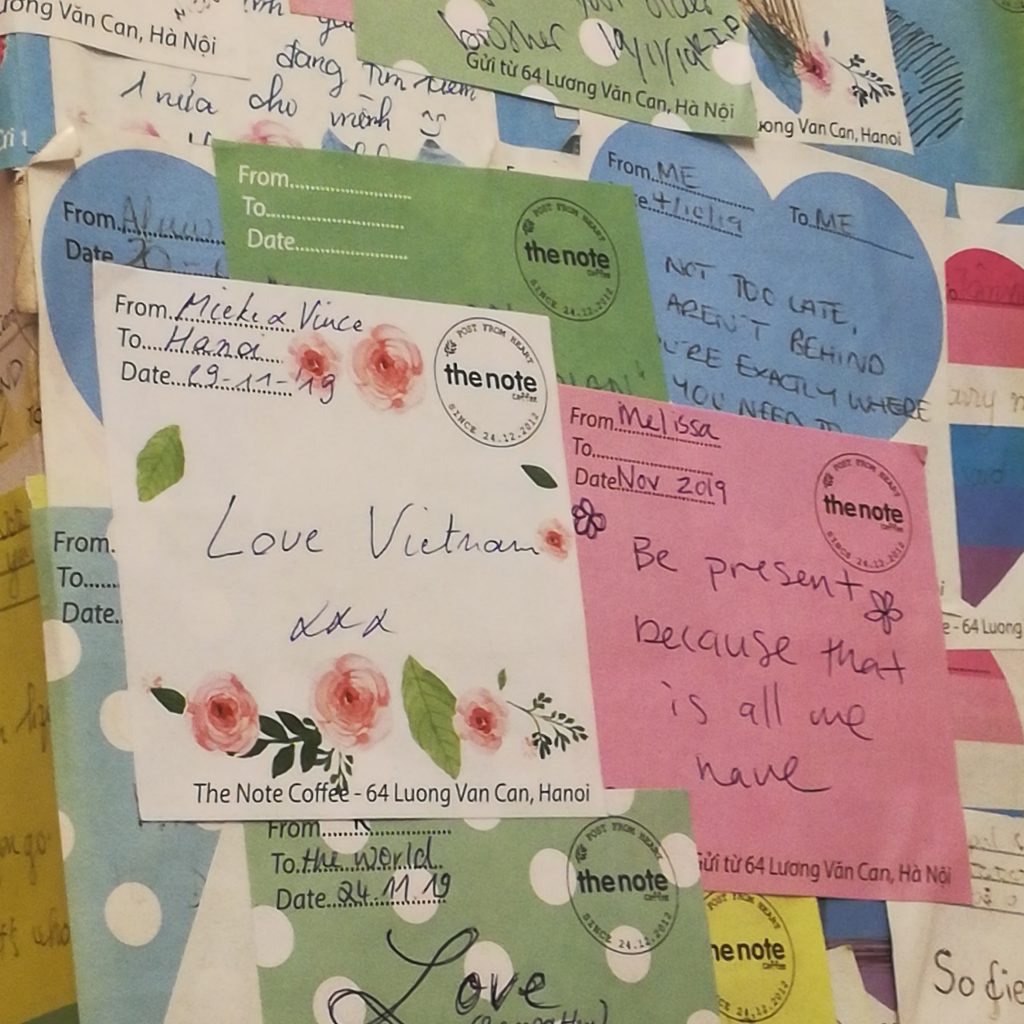 ương Văn Can, Hà Nội
đang tìm kiếm
1 nửa cho mình
brother 19/11/19 R.I.P
Gửi từ 64 Lương Văn Can, Hà Nội
ương Van Can, Hanoi
From
Date
From
To
Date
POST FROM HEART
the note
coffee
SINCE 24.12.2012
From ME
4/10/19
To ME
NOT TOO LATE,
AREN'T BEHIND
U'RE EXACTLY WHERE
YOU NEED TO
From Mieke & Vince
To Hanoi
Date 29-11-'19
POST FROM HEART
the note
coffee
SINCE 24.12.2012
Love Vietnam
xxx
The Note Coffee - 64 Luong Van Can, Hanoi
From Melissa
To
Date Nov 2019
POST FROM HEART
the note
coffee
SINCE 24.12.2012
Be present
because that
is all we
have
Gửi từ 64 Lương Văn Can, Hà Nội
e - 64 Luong
From
To
Date
From K
To the world
Date 24.11.19
POST FROM HEART
the note
coffee
SINCE 24.12.2012
Love
he note
coffee
SINCE 24.12.2012